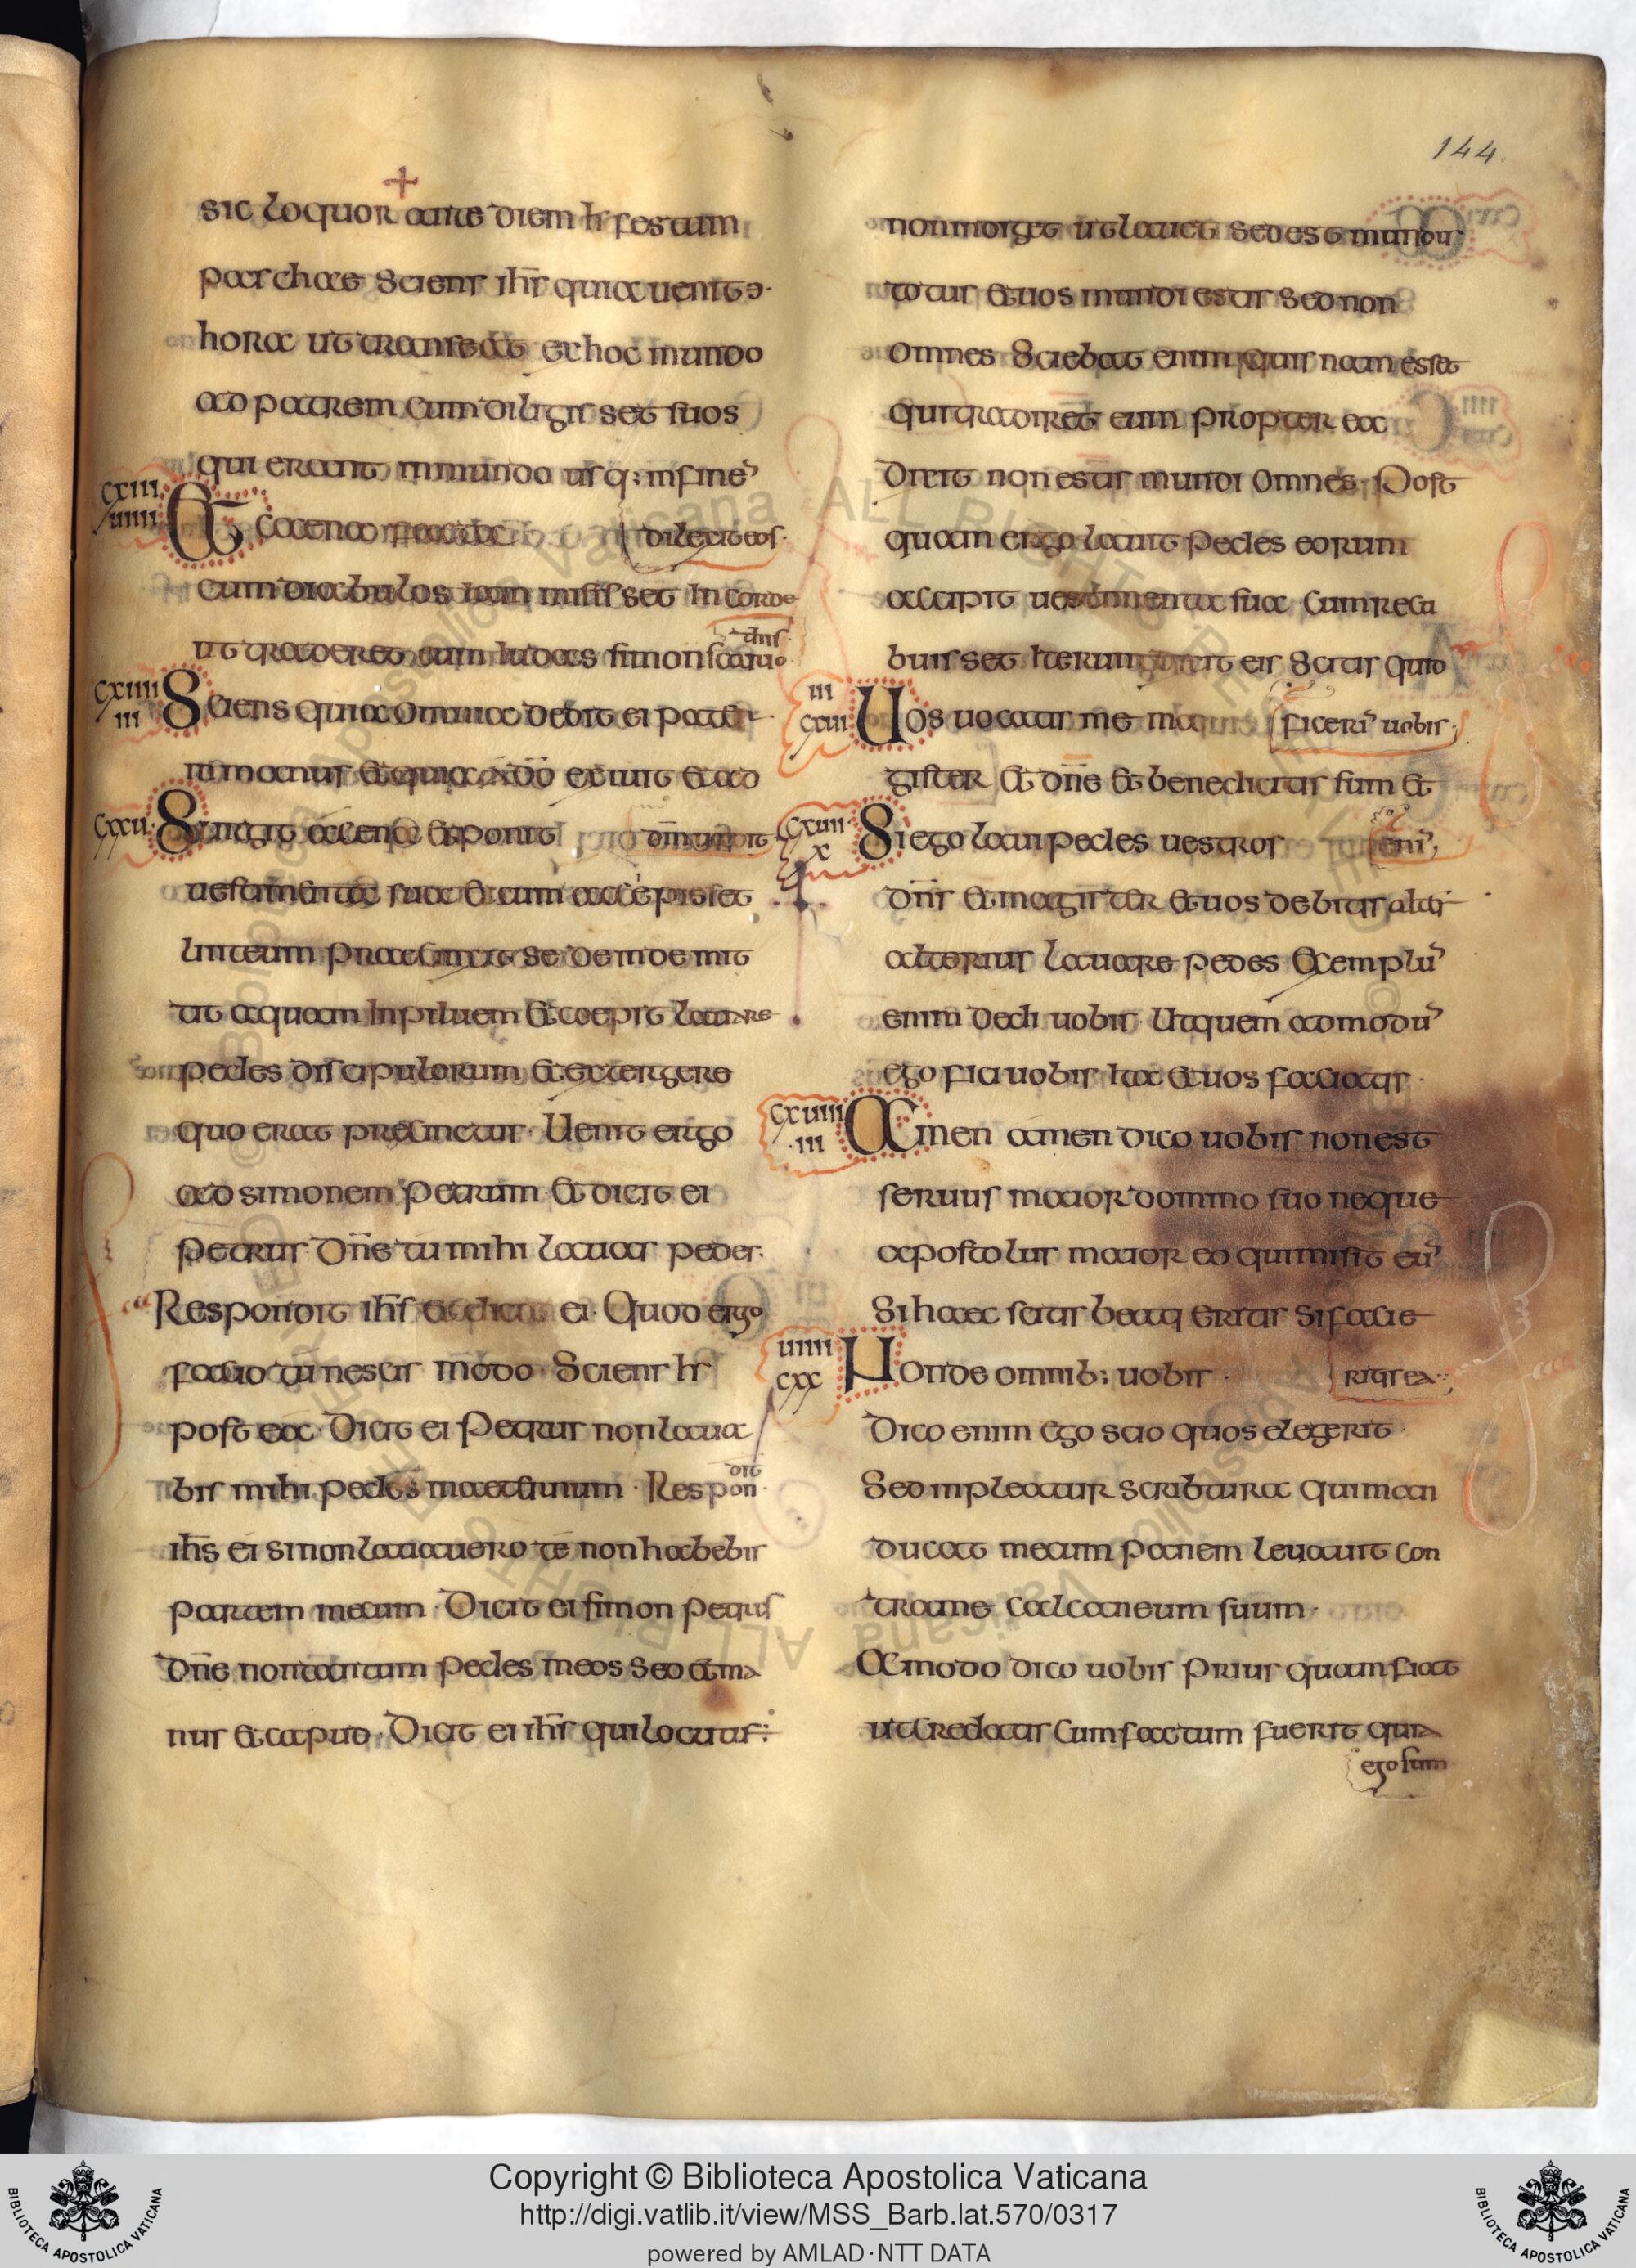 144
sic loquor ante diem h̄ festum
paschae Sciens ih̄s quia uenit
hora ut transeat ex hoc mundo
ad patrem cum diligisset suos
qui erant in mundo usq; in fine
cxiii
uiiii
Et caena facta
dilexit eos
cum diabulos iam misisset in corde
ut traderet eum iudas simon scario
cxiiii
iii
Sciens quia omnia debit ei pater
in manus et quia a dō exiuit et ad
cxu
Surgit a cena et ponit
dm̄ uadit
uestimenta sua et cum accepisset
linteum praecinxit se deinde mit
tit aquam in piluem et coepit lauare
pedes discipulorum et extergere
quo erat precinctus · Uenit ergo
ad simonem petrum et dicit ei
petrus dn̄e tu mihi lauas pedes.
Respondit ih̄s et dicit ei · Quod ergo
facio tu nescis modo · Sciens h̄
post ea · Dicit ei petrus non laua
bis mihi pedes in aeternum · Respon
dit
ih̄s ei si non lauauero te non habebis
partem mecum · Dicit ei simon petrus
dn̄e non tantum pedes meos sed et ma
nus et capud · Dicit ei ih̄s qui locutus
non indiget ut lauet sed est mundus
totus et uos mundi estis sed non
omnes Sciebat enim quis nam esset
qui traderet eum propter ea
dixit non estis mundi omnes · Post
quam ergo lauit pedes eorum
accipit uestimenta sua Cum recu
buisset iterum dicit eis Scitis quid
iii
cxui
Uos uocatis me ma
ficerī uobis
gister et dn̄e et benedicitis sum et
cxuii
x
Si ego laui pedes uestros
enī
dn̄s et magister et uos debitis alter
alterius lauare pedes Exemplū
enim dedi uobis Ut quem ad modū
ego fici uobis ita et uos faciatis
cxuiii
iii
Amen amen dico uobis non est
seruus maior domino suo neque
apostolus maior eo qui misit eū
Si haec scitis beati eritis si facie
uiiii
cxx
Non de omnib; uobis
ritis ea
dico enim ego scio quos elegerit
Sed inpleatur scribtura qui man
ducat mecum panem leuauit con
tra me calcaneum suum
Amodo dico uobis prius quam fiat
ut credatis cum factum fuerit quia
ego sum
Copyright © Biblioteca Apostolica Vaticana
http://digi.vatlib.it/view/MSS_Barb.lat.570/0317
powered by AMLAD·NTT DATA
BIBLIOTECA APOSTOLICA VATICANA
BIBLIOTECA APOSTOLICA VATICANA